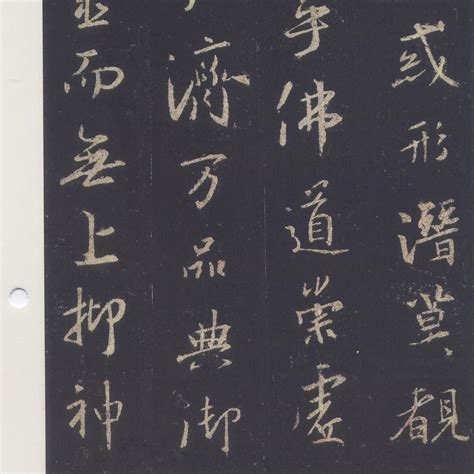 惑形潛莫覩
乎佛道崇虛
濟万品典御
而無上抑神